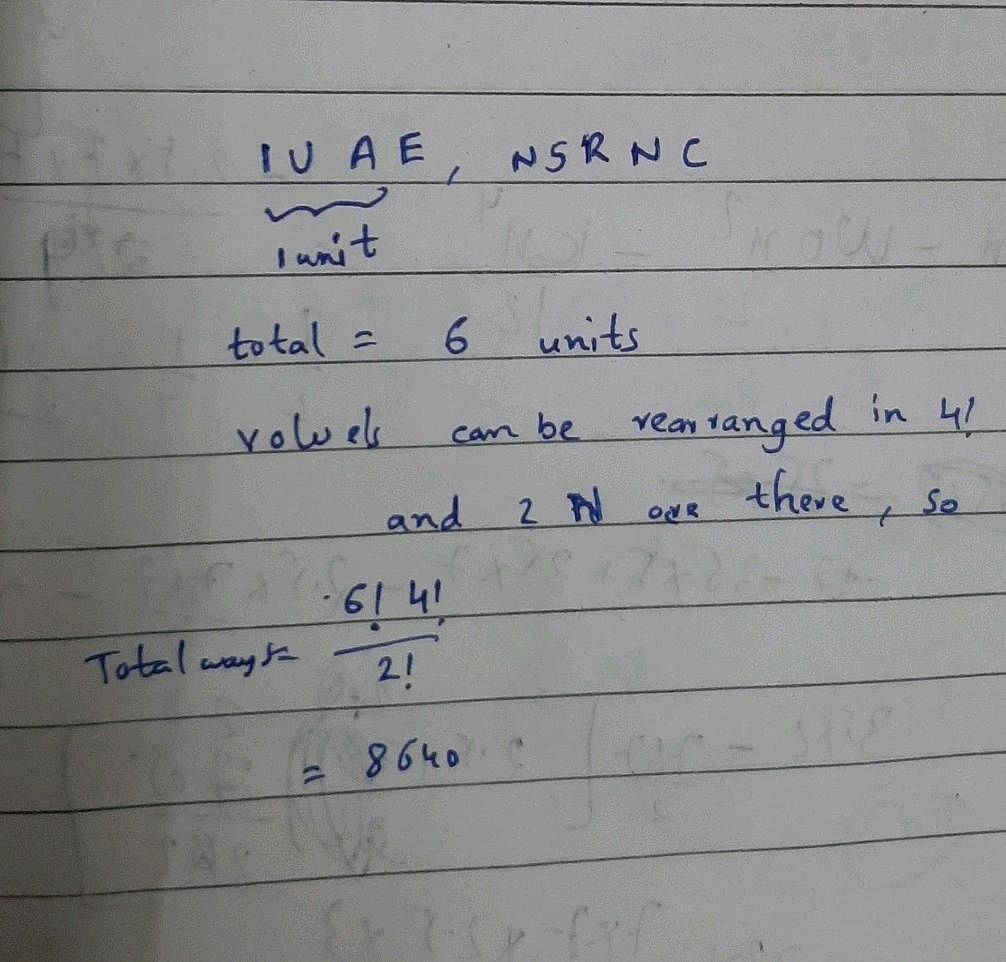 IU AE, NSRNC
1 unit
total = 6 units
vowels can be rearranged in 4!
and 2 N are there, so
Total ways = 6! 4! / 2!
= 8640